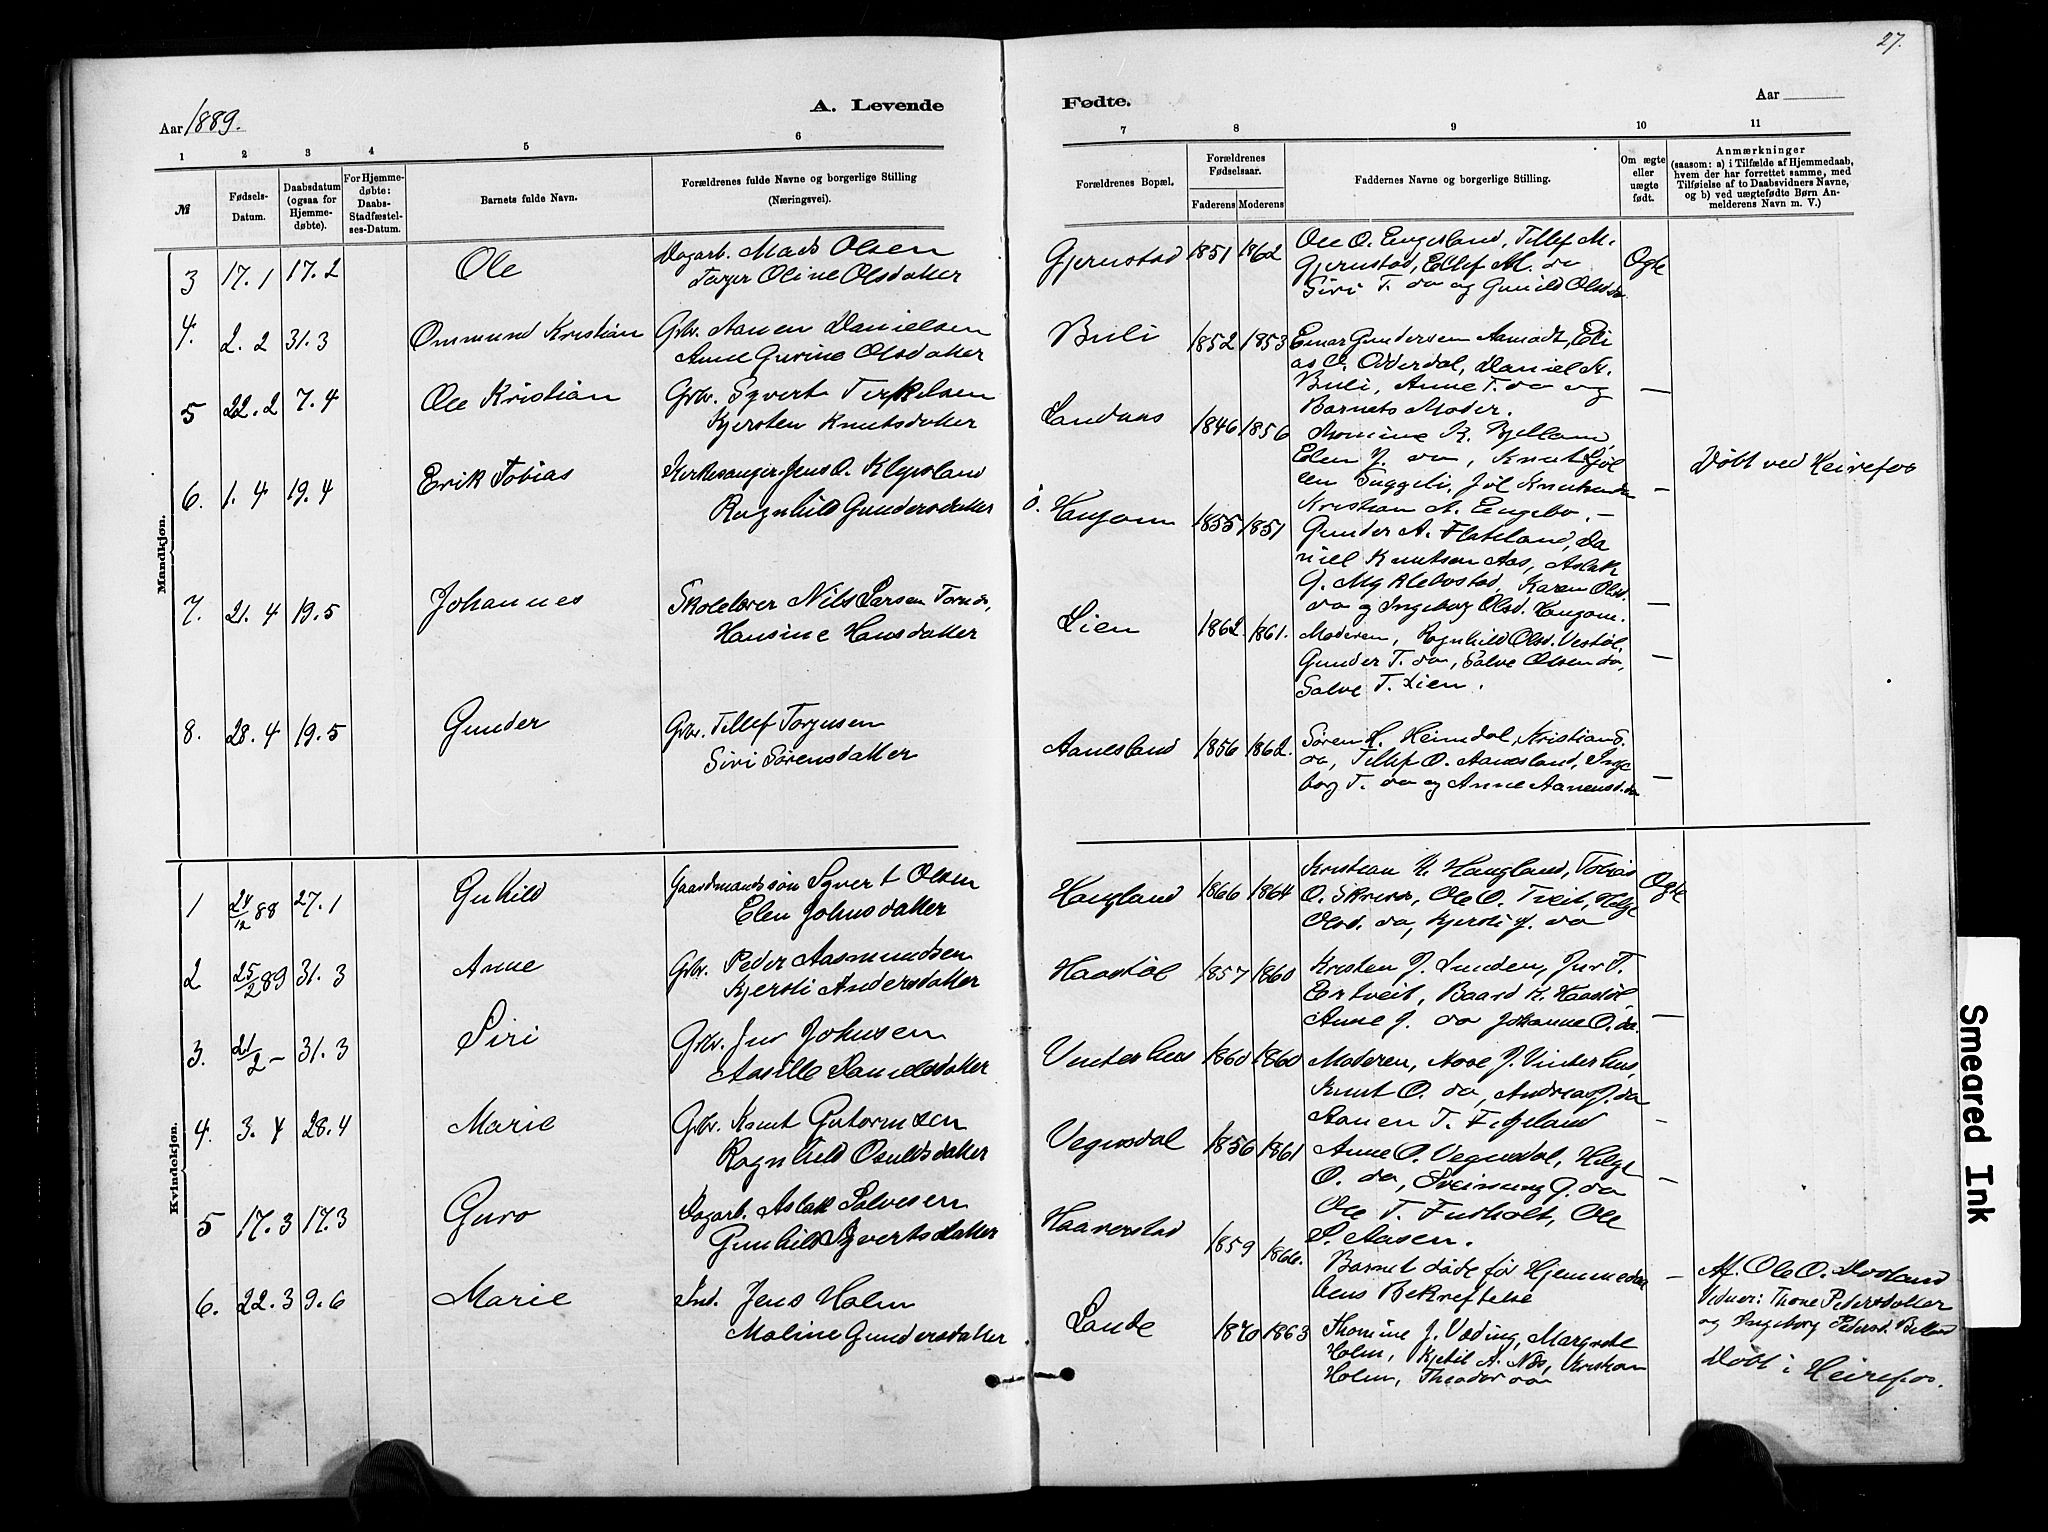 27.
Aar 1889.
A. Levende
Fødte.
Aar
1 2 3 4 5 6
7 8 9 10 11
№
Fødsels-
Datum.
Daabsdatum
(ogsaa for
Hjemme-
døbte).
For Hjemme-
døbte:
Daabs-
Stadfæstel-
ses-Datum.
Barnets fulde Navn.
Forældrenes fulde Navne og borgerlige Stilling
(Næringsvei).
Forældrenes Bopæl.
Forældrenes
Fødselsaar.
Faderens Moderens
Faddernes Navne og borgerlige Stilling.
Om ægte
eller
uægte
født.
Anmærkninger
(saasom: a) i Tilfælde af Hjemmedaab,
hvem der har forrettet samme, med
Tilføielse af to Daabsvidners Navne,
og b) ved uægtefødte Børn An-
melderens Navn m. V.)
Mandkjøn.
3 17.1 17.2 Ole
Dagarb. Mads Olsen
Oline Olsdatter
Gjerustad 1851 1862
Ole O. Engesland, Tellef M.
Gjerustad, Ellef M. do
Siri T. do og Gunild Olsd. do
Ogte
4. 2.2 31.3 Ommund Kristian
Grbr. Aanen Danielsen
Anne Gurine Olsdatter
Buli 1852 1853
Einar Gundersen Aamodt, Eli
as O. Odderdal, Daniel A.
Buli, Anne T. do og
Barnets Moder.
—
5 22.2 7.4 Ole Kristian
Grbr. Syvert Terkelsen
Kjersten Knutsdatter
Landaas 1846 1856
Thomine K. Kjelland,
Elen J. do, Knut
Kristian A. Engebo. —
—
6. 1.4 19.4 Erik Tobias
Kirkesanger Jens O. Klepsland
Ragnhild Gundersdatter
Haugom 1855 1851
Gunder A. Flateland, Da
niel Knutsen Aas, Aslak
G. Myklebostad, Karen Olsd.
do og Ingeborg Olsd. Haugom.
—
Døbt ved Heirefos
7. 21.4 19.5 Johannes
Skolelærer Nils Larsen
Hansine Hansdatter
Lien 1862. 1861.
Moderen, Ragnhild Olsd. Vestøl,
Gunder T. do, Salve Olsen do,
Salve T. Lien.
—
8. 28.4 19.5 Gunder
Grbr. Tellef Torjusen
Siri Sørensdatter
Aanesland 1856 1862.
Søren L. Heimdal, Kristian S.
do, Tellef O. Aanesland, Inge
borg T. do og Anne Aanensd. do
—
Kvindekjøn.
1 24/12 88 27.1 Guhild
Gaardmandssøn Syvert Olsen
Elen Johnsdatter
Haugland 1866 1864
Kristian K. Haugland, Tobias
O. Skreros, Ole O. Tveit, Helge
Olsd. do, Kjersti J. do
Ogte
2 25/2 89 31.3 Anne
Grbr. Peder Aasmundsen
Kjersti Andersdatter
Haastøl 1857 1860
Kristen J. Lunden, Jur T.
Ertveit, Baard K. Haastøl
Anne J. do Johanne O. do.
—
3. 21/2 – 31.3 Siri
Grbr. Jur Johnsen
Aasille Danielsdatter
Vinterhus 1860 1860
Moderen, Aase J. Vinterhus,
Knut O. do, Andreas J. do
Aanen T. Figeland
—
4. 3.4 28.4 Marie
Grbr. Knut Gutormsen
Ragnhild Osuldsdatter
Vegusdal 1856 1861
Anne O. Vegusdal, Helge
O. do, Sveinung G. do
Ole T. Fusholt, Ole
S. Aasen.
—
5 17.3 17.3 Guro
Dagarb. Aslak Salvesen
Gunhild Syvertsdatter
Haaverstad 1859 1866.
Barnet døde før Hjemmedaa
bens Bekræftelse
—
Af. Ole O. Dosland
Vidner: Thone Pedersdatter
og Ingeborg Pedersd.
6. 22.3 9.6 Marie
Ind. Jens Holm
Maline Gundersdatter
Lande 1840 1863
Thomine J. Væding, Margrete
Holm, Kjetil A. Næs, Kristian
Holm, Theodor do
Døbt i Heirefos.
Smeared Ink